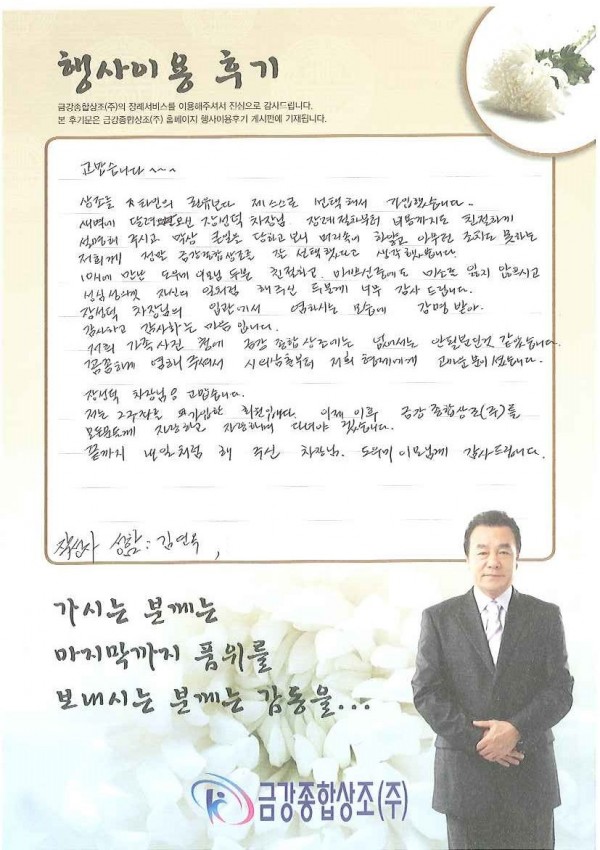 행사이용 후기
금강종합상조(주)의 장례서비스를 이용해주셔서 진심으로 감사드립니다.
본 후기문은 금강종합상조(주) 홈페이지 행사이용후기 게시판에 기재됩니다.
고맙습니다~~~
상조는 타인의 권유보다 제 스스로 선택해서 가입했습니다.
새벽에 달려오신 장선덕 차장님 장례절차부터 비용까지도 친절하게
설명해 주시고 막상 큰일을 당하고 보니 머리속이 하얗고 아무런 조치도 못하는
저희께 정말 금강종합상조를 잘 선택했다고 생각했습니다.
10시에 만난 도우미 이모님 두분 친절하고 미소도 잃지 않으시고
성심성의껏 자신의 일처럼 해주신 두분께 너무 감사 드립니다.
장선덕 차장님의 입관에서 염하시는 모습에 감명 받아.
감사하고 감사하는 마음 입니다.
저희 가족사진 금강종합상조에는
꼼꼼하게 염해 주셔서 저희 형제에게
장선덕 차장님 고맙습니다.
저는 2구좌를 가입한 회원입니다. 이제 이후 금강종합상조(주)를
모든분들께 자랑하고 자랑하며 다녀야 겠습니다.
끝까지 내일처럼 해 주신 차장님. 도우미 이모님께 감사드립니다.
작성자 성함 : 김연옥
가시는 분께는
마지막까지 품위를
보내시는 분께는 감동을...
금강종합상조(주)